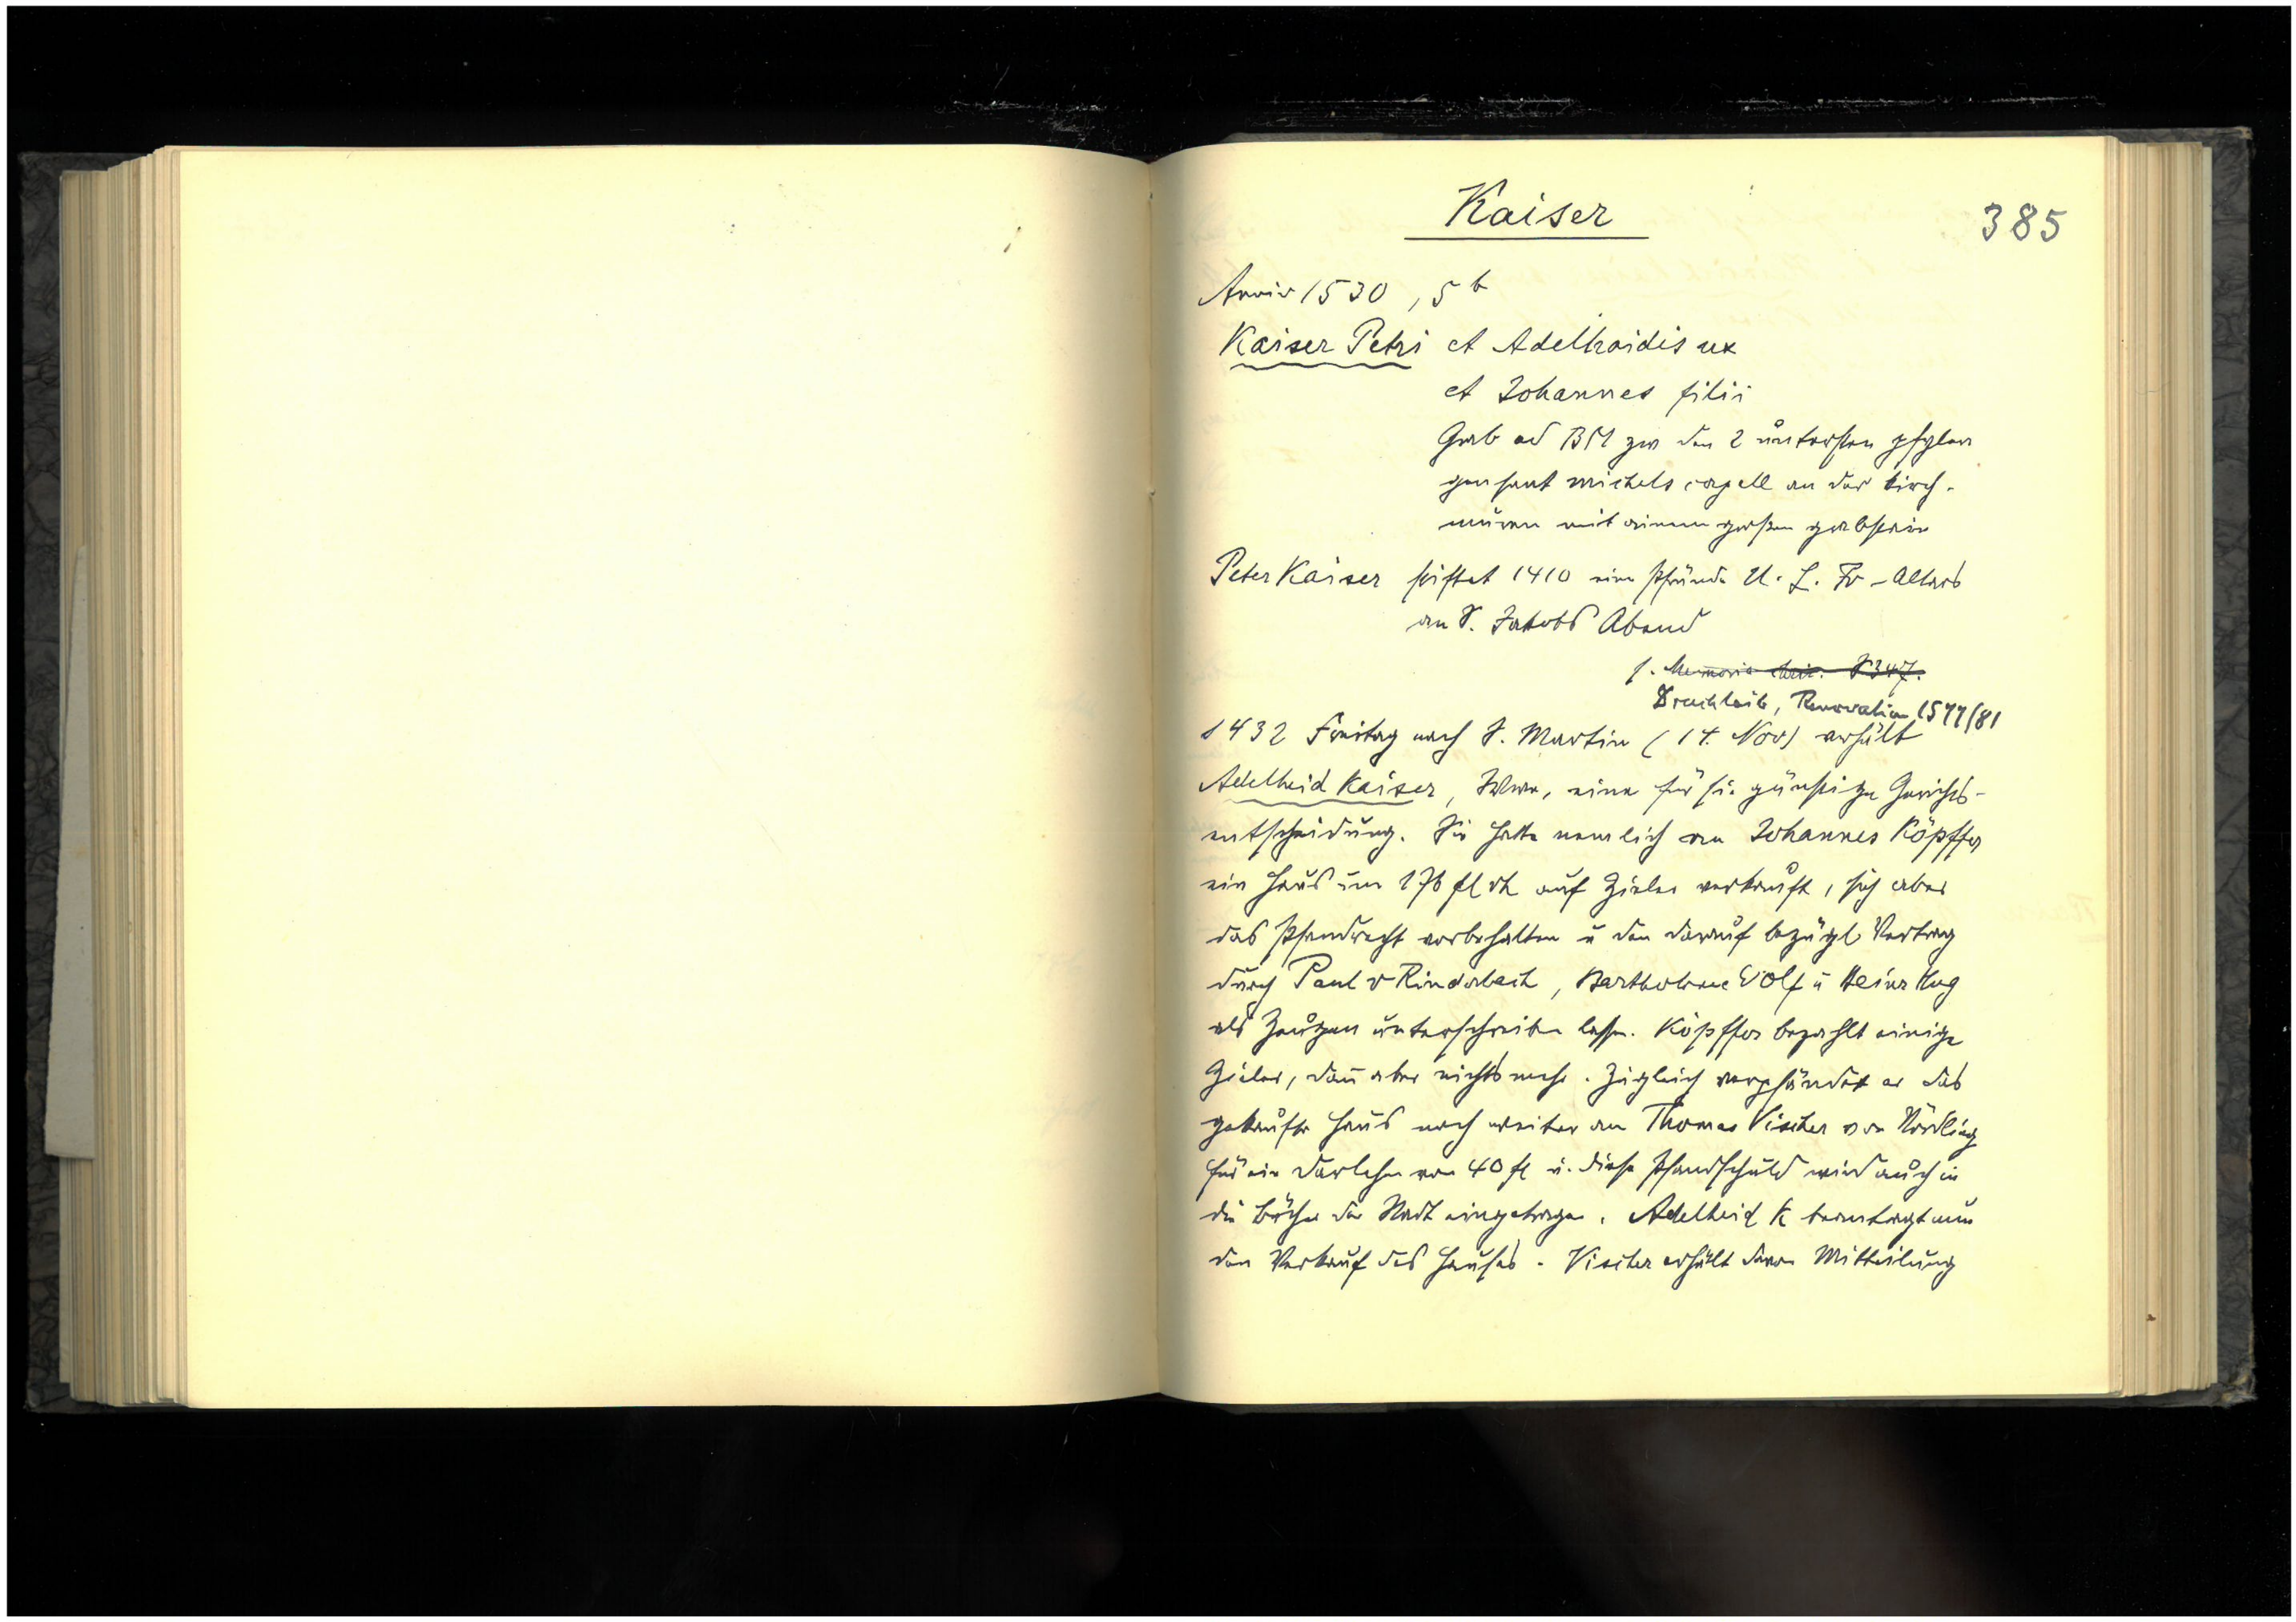 Kaiser
385
Anniv 1530, 5b
Kaiser Petri et Adelhaidis ux
et Johannes filii
Grab ad BM zw den 2 untersten pfyler
genant michels capell an der kirch-
muren mit einem großen grabstein
Peter Kaiser stiftet 1410 eine Pfründe U. L. Fr-Altars
an S. Jakobs Abend
s. Memoria S 347.
Drachlaib, Renovation 1577/81
1432 Freitag nach S. Martin (14. Nov) erhält
Adelheid Kaiser, Wwe, eine für sie günstige Gerichts-
entscheidung. Sie hatte nemlich an Johannes Köpffer
ein Haus um 176 fl rh auf Zieler verkauft, sich aber
das Pfandrecht vorbehalten u den darauf bezügl Vertrag
durch Paul v Rinderbach, Bartholome Wolf u Heinr Hug
als Zeugen unterschreiben lassen. Köpffer bezahlt einige
Zieler, dann aber nichts mehr. Zugleich verpfändet er das
gekaufte Haus noch weiter an Thomas Vischer von Nördling
für ein Darlehen von 40 fl u. diese Pfandschuld wird auch in
die Bücher der Stadt eingetragen. Adelheid K beantragt nun
den Verkauf des Hauses. Vischer erhält davon Mitteilung